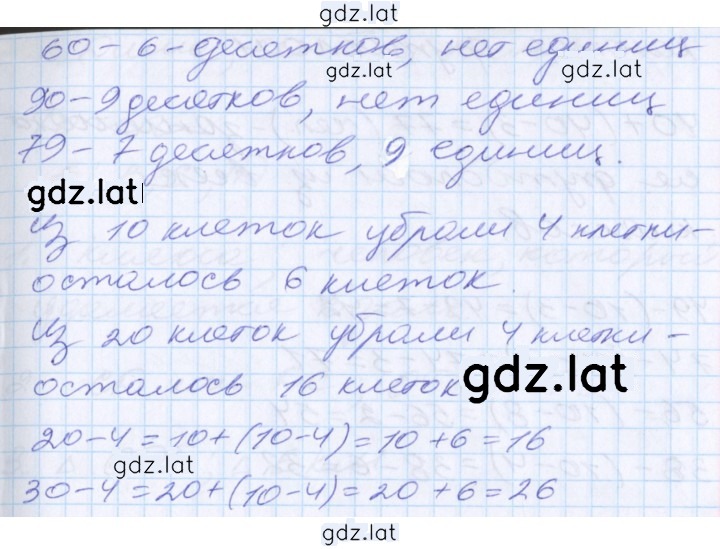 gdz.lat
60 - 6 - десятков, нет единиц
gdz.lat
gdz.lat
90 - 9 десятков, нет единиц
79 - 7 десятков, 9 единиц.
gdz.lat
Из 10 клеток убрали 4 клетки -
осталось 6 клеток.
Из 20 клеток убрали 4 клетки -
осталось 16 клеток
gdz.lat
20 - 4 = 10 + (10 - 4) = 10 + 6 = 16
gdz.lat
30 - 4 = 20 + (10 - 4) = 20 + 6 = 26
gdz.lat
gdz.lat